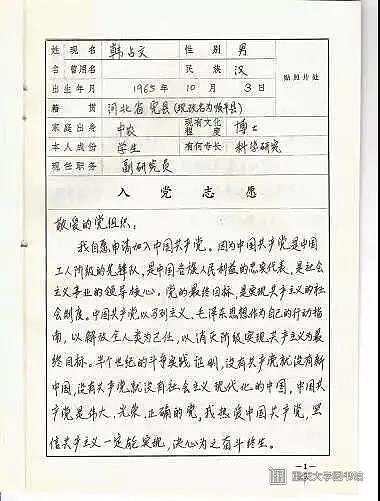 姓 现名 韩占文 性别 男
名 曾用名 民族 汉
贴照片处
出生年月 1965年10月3日
籍贯 河北省完县(现改名为顺平县)
家庭出身 中农 现有文化程度 博士
本人成份 学生 有何专长 科学研究
现任职务 副研究员
入党志愿
敬爱的党组织:
我自愿申请加入中国共产党。因为中国共产党是中国
工人阶级的先锋队,是中国各族人民利益的忠实代表,是社会
主义事业的领导核心。党的最终目标,是实现共产主义的社
会制度。中国共产党以马列主义、毛泽东思想作为自己的行动指
南,以解放全人类为己任,以消灭阶级实现共产主义为最
终目标。半个世纪的斗争实践证明,没有共产党就没有新
中国,没有共产党就没有社会主义现代化的中国,中国共
产党是伟大、光荣、正确的党。我热爱中国共产党,坚
信共产主义一定能实现,决心为之奋斗终生。
—1—
重庆大学图书馆